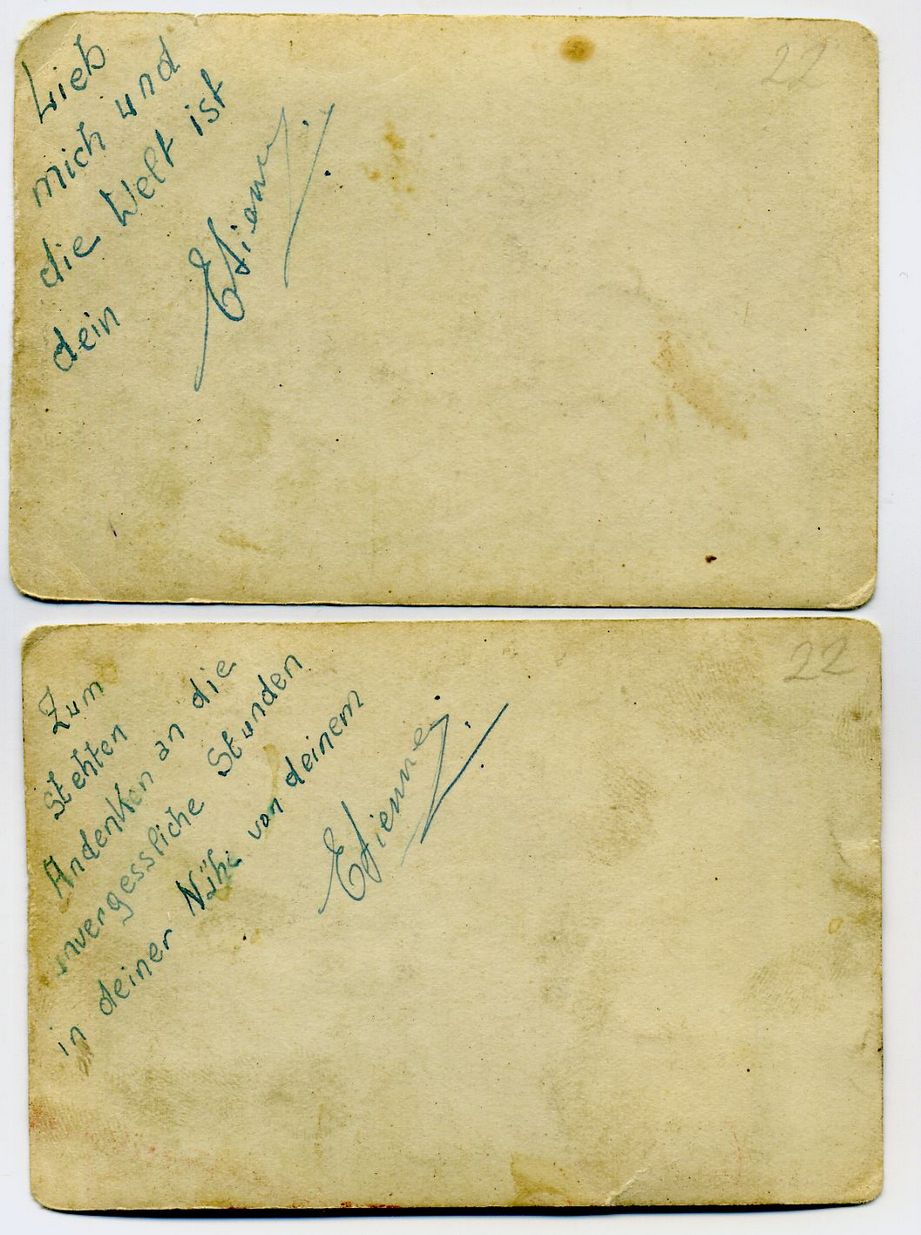 22
Lieb
mich und
die Welt ist
dein
Etienne
22
Zum
stehten
Andenken an die
unvergessliche Stunden
in deiner Nähe von deinem
Etienne